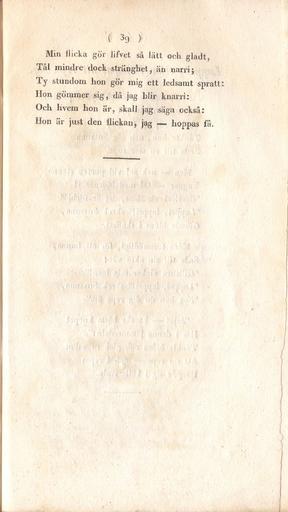 ( 39 )
Min flicka gör lifvet så lätt och gladt,
Tål mindre dock stränghet, än narri;
Ty stundom hon gör mig ett ledsamt spratt:
Hon gömmer sig, då jag blir knarri:
Och hvem hon är, skall jag säga också:
Hon är just den flickan, jag — hoppas få.